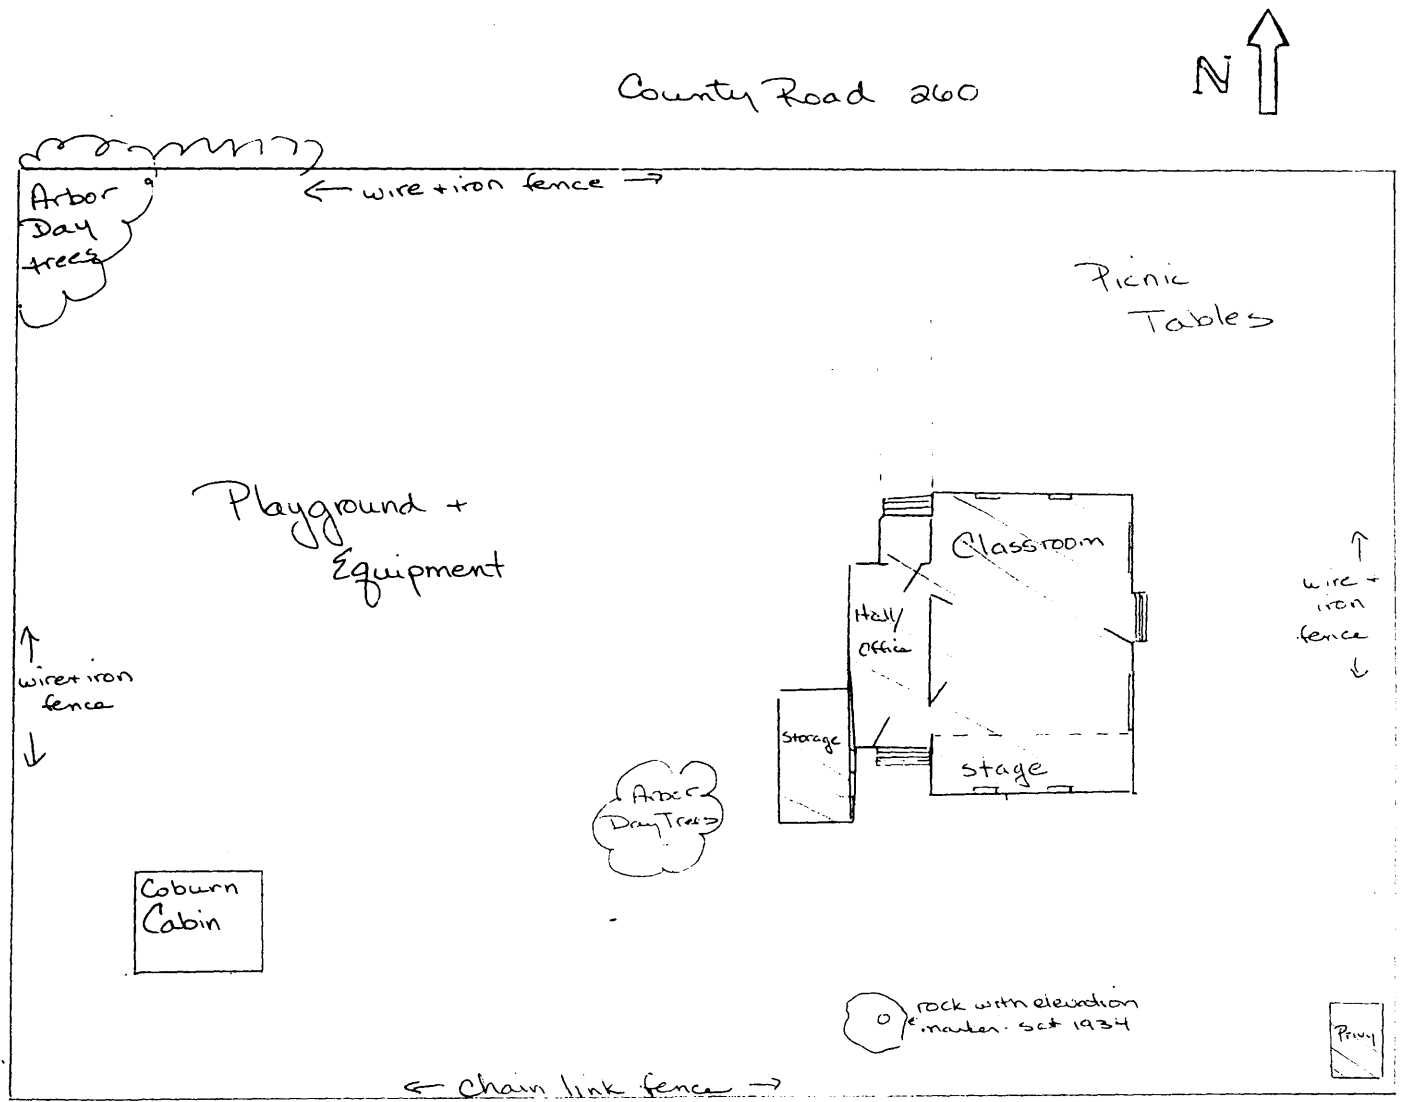 N
County Road 260
← wire + iron fence →
Arbor
Day
trees
Picnic
Tables
Playground +
Equipment
Classroom
Hall/
Office
wire +
iron
fence
wire + iron
fence
Storage
stage
Arbor
Day Trees
Coburn
Cabin
rock with elevation
marker. set 1934
Privy
← chain link fence →